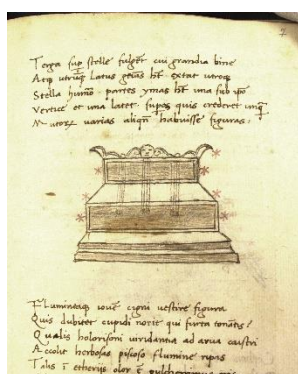 7
Terga sup stelle fulgēt cui grandia bine
Atq utrūq latus genus ht extat utroq
Stella humo partes ymas ht una sub ipō
Vertice et una latet supos quis crederet unq
Matorꝝ varias aliqñ habuisse figuras.
Flumineaq iouē cigni uestire figura
Quis dubitet cupidi norit qui furta tonātis?
Qualis holorisoni uiridantia ad arua caistri
Accolit herbosas piscoso flumine ripas
Talis ī etherijs olor ē pulcherrimus